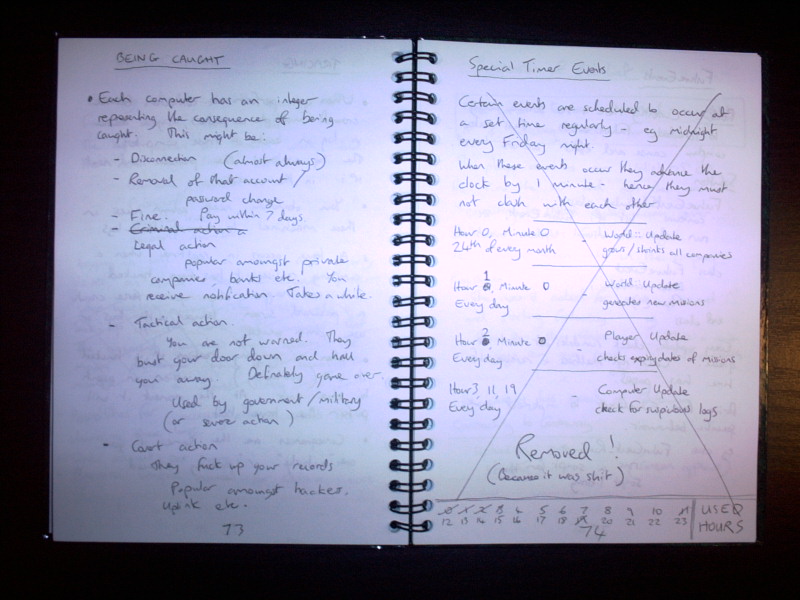 BEING CAUGHT
• Each computer has an integer
representing the consequence of being
caught. This might be:
- Disconnection (almost always)
- Removal of that account /
password change
- Fine. Pay within 7 days
- Criminal action a
Legal action
popular amongst private
companies, banks etc. You
receive notification. Takes a while.
- Tactical action.
You are not warned. They
bust your door down and haul
you away. Definately game over.
Used by government/military
(or severe action)
- Covert action
They fuck up your records
Popular amongst hackers,
Uplink etc.
73
Special Timer Events
Certain events are scheduled to occur at
a set time regularly - eg midnight
every Friday night.
When these events occur they advance the
clock by 1 minute - hence they must
not clash with each other
Hour 0, Minute 0 - World::Update
24th of every month grows/shrinks all companies
Hour 1, Minute 0 - World::Update
Every day generates new missions
Hour 2, Minute 0 - Player Update
Every day checks expiry dates of missions
Hour 3, 11, 19 - Computer Update
Every day check for suspicious logs
Removed!
(Because it was shit)
0 1 2 3 4 5 6 7 8 9 10 11 USED
12 13 14 15 16 17 18 19 20 21 22 23 HOURS
74